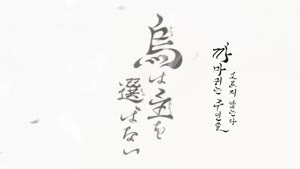 烏は主を
選ばない
까마귀는 주인을
고르지 않는다